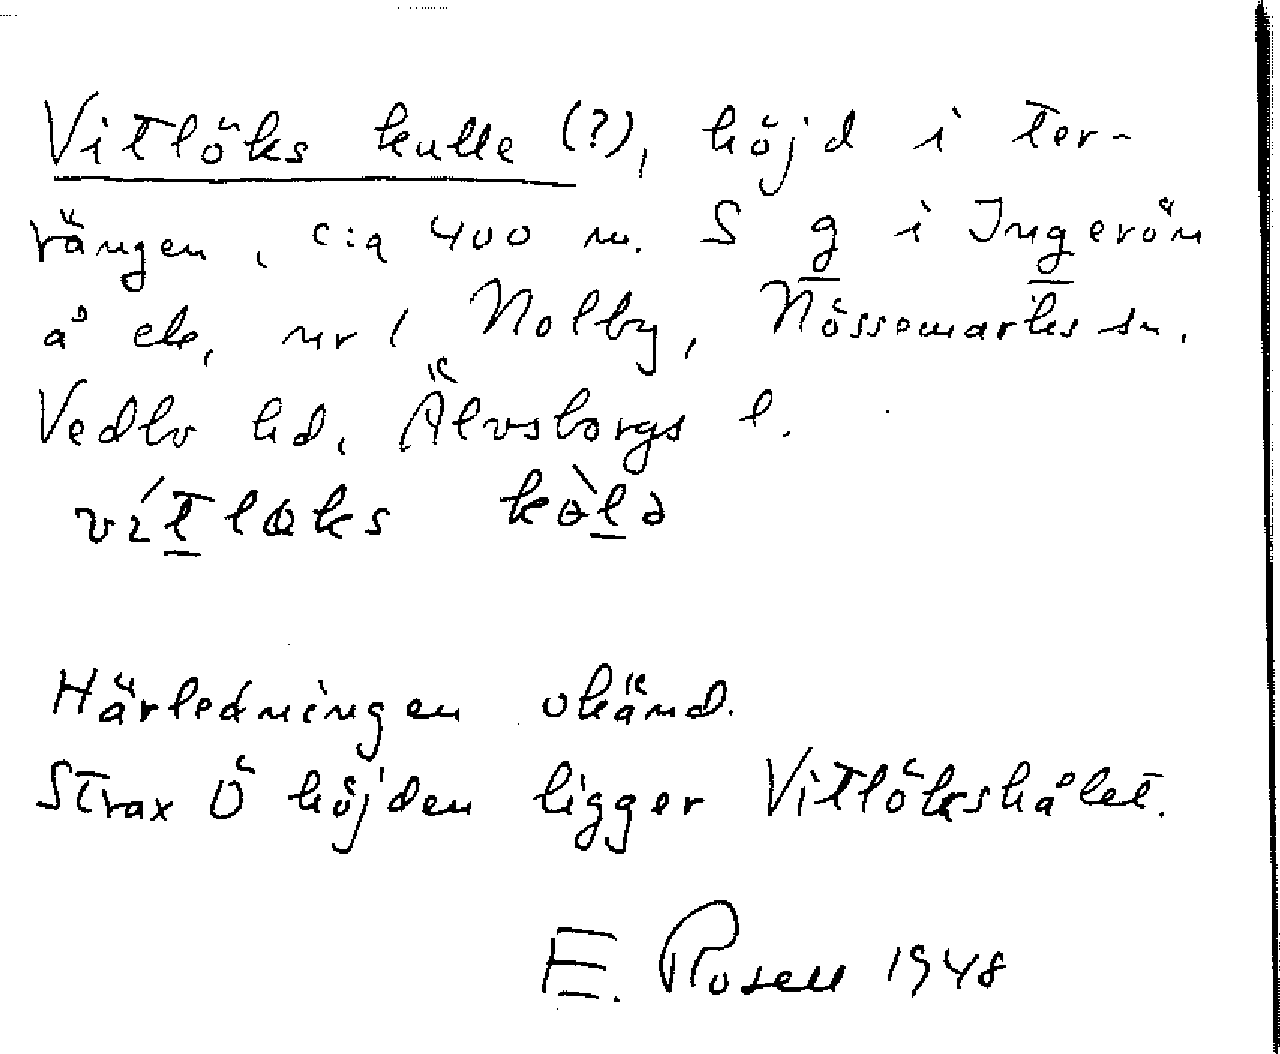 Vitlöks kulle (?), höjd i ter-
rängen, c:a 400 m. S g i Ingerön
å ek, nr 1 Nolby, Nössemarks sn.
Vedbo hd. Älvsborgs l.
Härledningen okänd.
Strax Ö höjden ligger Vitlökshålet.
E. Rosell 1948